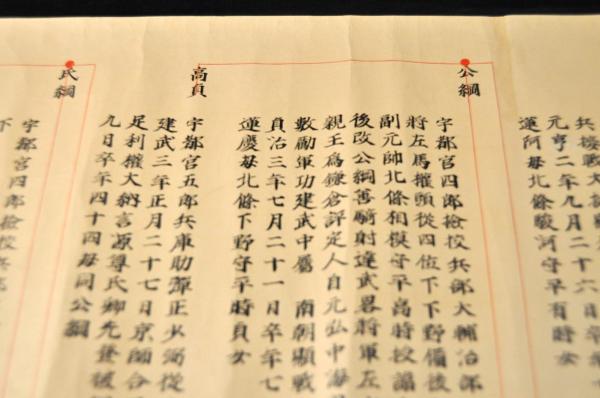 元亨二年九月二十六日卒
運阿母北條駿河守平有時女
公綱
宇都宮四郎撿挍兵部大輔治部
將左馬權頭從四位下下野備後
副元帥北條相模守平高時授諱
後改公綱善騎射達武畧將軍左
親王為鎌倉評定人自元弘中海
數勵軍功建武中屬 南朝顯戰
貞治三年七月二十一日卒年七
運慶母北條下野守平時貞女
高貞
宇都宮五郎兵庫助彈正少弼從
建武三年正月二十七日京師合
足利權大納言源尊氏卿先登被
九日卒年四十四母同公綱
氏綱
宇都宮四郎撿挍兵部
下